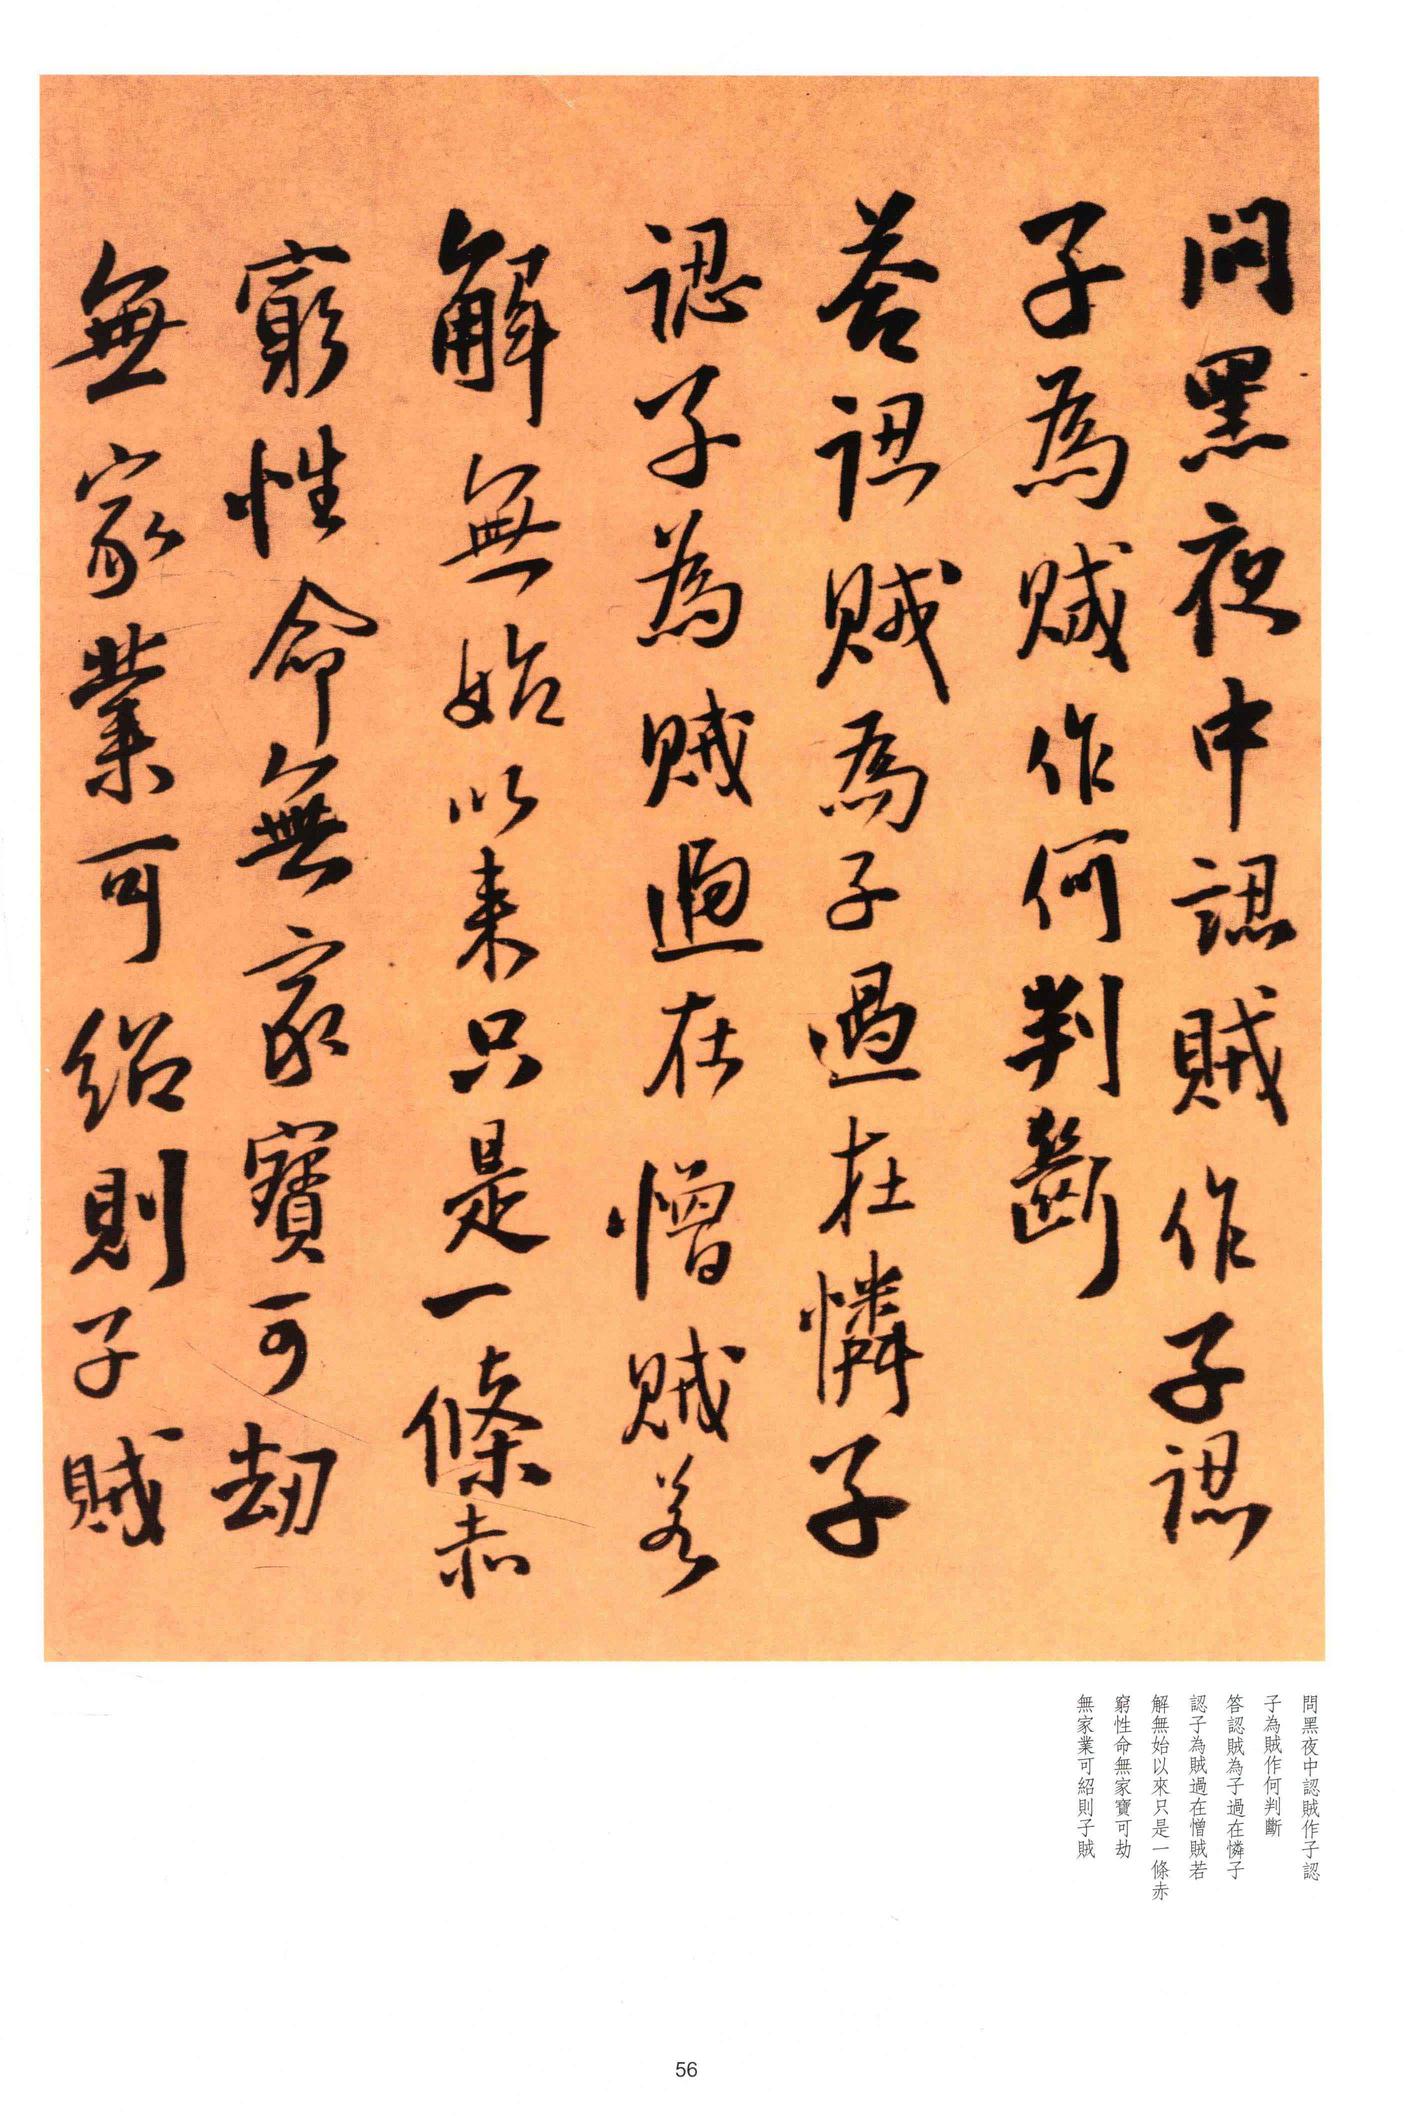 問黑夜中認賊作子認
子為賊作何判斷
答認賊為子過在憐子
認子為賊過在憎賊若
解無始以來只是一條赤
窮性命無家寶可劫
無家業可紹則子賊
問黑夜中認賊作子認
子為賊作何判斷
答認賊為子過在憐子
認子為賊過在憎賊若
解無始以來只是一條赤
窮性命無家寶可劫
無家業可紹則子賊
56